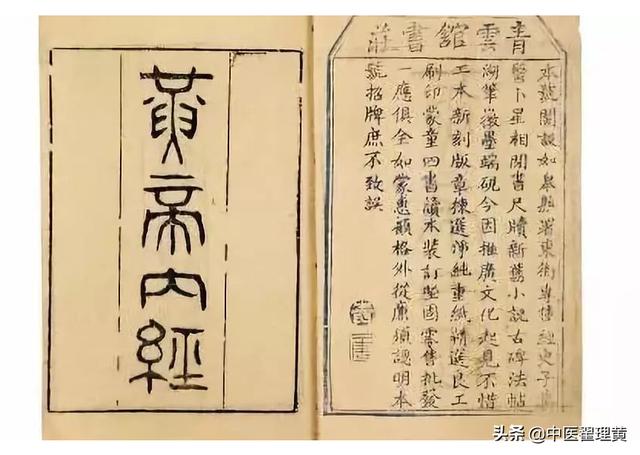 青雲館書莊
本號開設如皋縣署東街專售經史子集
醫卜星相閒書尺牘新舊小說古碑法帖
湖筆徽墨端硯今因推廣文化起見不惜
工本新刻版章揀選淨純重紙精選良工
刷印蒙童四書讀本裝訂堅固零售批發
一應俱全如蒙惠顧格外從廉須認明本
號招牌庶不致誤
黃帝內經
头条 @中医翟理黄